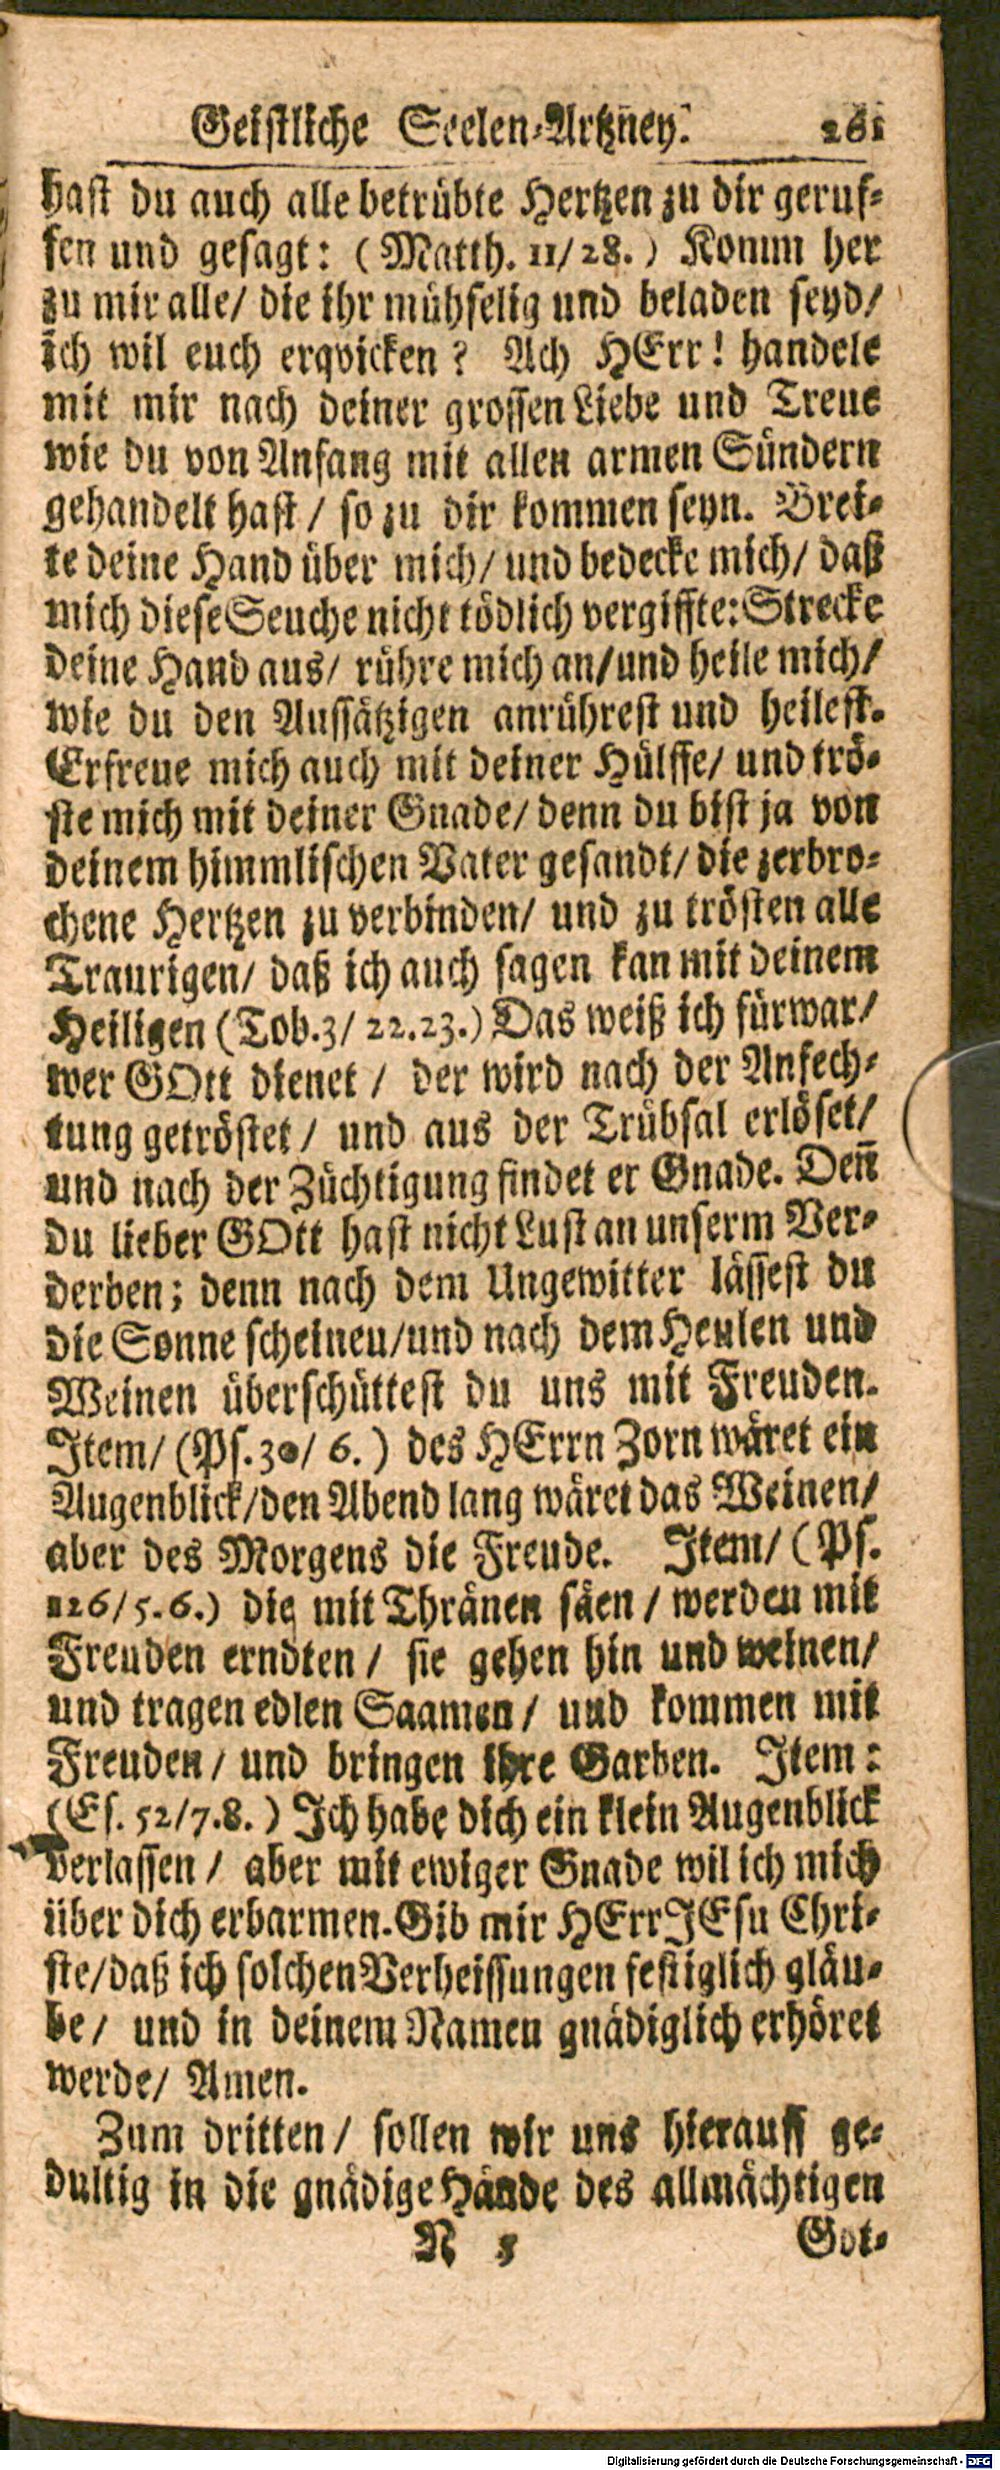 Geistliche Seelen-Artzney. 261
hast du auch alle betrübte Hertzen zu dir geruf-
fen und gesagt: (Matth. 11/28.) Komm her
zu mir alle/ die ihr mühselig und beladen seyd/
ich wil euch erqvicken? Ach HErr! handele
mit mir nach deiner grossen Liebe und Treue
wie du von Anfang mit allen armen Sündern
gehandelt hast/ so zu dir kommen seyn. Brei-
te deine Hand über mich/ und bedecke mich/ daß
mich diese Seuche nicht tödlich vergiffte: Strecke
deine Hand aus/ rühre mich an/ und heile mich/
wie du den Aussätzigen anrührest und heilest.
Erfreue mich auch mit deiner Hülffe/ und trö-
ste mich mit deiner Gnade/ denn du bist ja von
deinem himmlischen Vater gesandt/ die zerbro-
chene Hertzen zu verbinden/ und zu trösten alle
Traurigen/ daß ich auch sagen kan mit deinem
Heiligen (Tob.3/ 22.23.) Das weiß ich fürwar/
wer GOtt dienet/ der wird nach der Anfech-
tung getröstet/ und aus der Trübsal erlöset/
und nach der Züchtigung findet er Gnade. Deñ
du lieber GOtt hast nicht Lust an unserm Ver-
derben; denn nach dem Ungewitter lässest du
die Sonne scheineu/und nach dem Heulen und
Weinen überschüttest du uns mit Freuden.
Item/ (Ps.30/ 6.) des HErrn Zorn wäret ein
Augenblick/den Abend lang wäret das Weinen/
aber des Morgens die Freude. Item/ (Ps.
126/5.6.) die mit Thränen säen/ werden mit
Freuden erndten/ sie gehen hin und weinen/
und tragen edlen Saamen/ und kommen mit
Freuden/ und bringen ihre Garben. Item:
(Es. 52/7.8.) Ich habe dich ein klein Augenblick
verlassen/ aber mit ewiger Gnade wil ich mich
über dich erbarmen. Gib mir HErr JEsu Chri-
ste/daß ich solchen Verheissungen festiglich gläu-
be/ und in deinem Namen gnädiglich erhöret
werde/ Amen.
Zum dritten/ sollen wir uns hierauff ge-
dultig in die gnädige Hände des allmächtigen
R 5 Got-
Digitalisierung gefördert durch die Deutsche Forschungsgemeinschaft - DFG